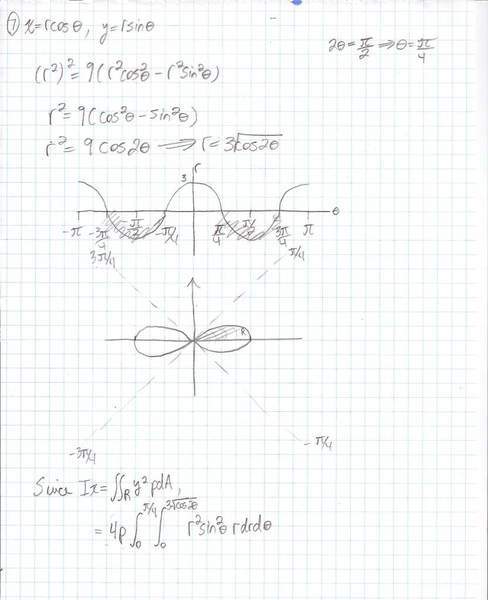 ⑦ x=rcosθ, y=rsinθ
2θ=π/2 ⇒ θ=π/4
(r²)²=9(r²cos²θ - r²sin²θ)
r²=9(cos²θ - sin²θ)
r²=9cos2θ ⟹ r=3√cos2θ
r
3
θ
-π -3π/4 -π/2 -π/4 π/4 π/2 3π/4 π
3π/4 π/4
R
-3π/4 -π/4
Since Ix=∬_R y²ρdA,
=4ρ∫_0^{π/4}∫_0^{3√cos2θ} r²sin²θ rdrdθ